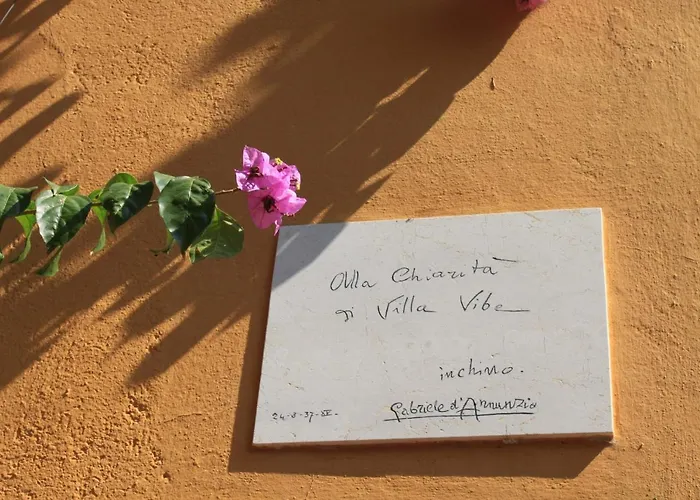 Alla Chiarità
di Villa Vibe
inchino.
24-8-37-XV- Gabriele d'Annunzio